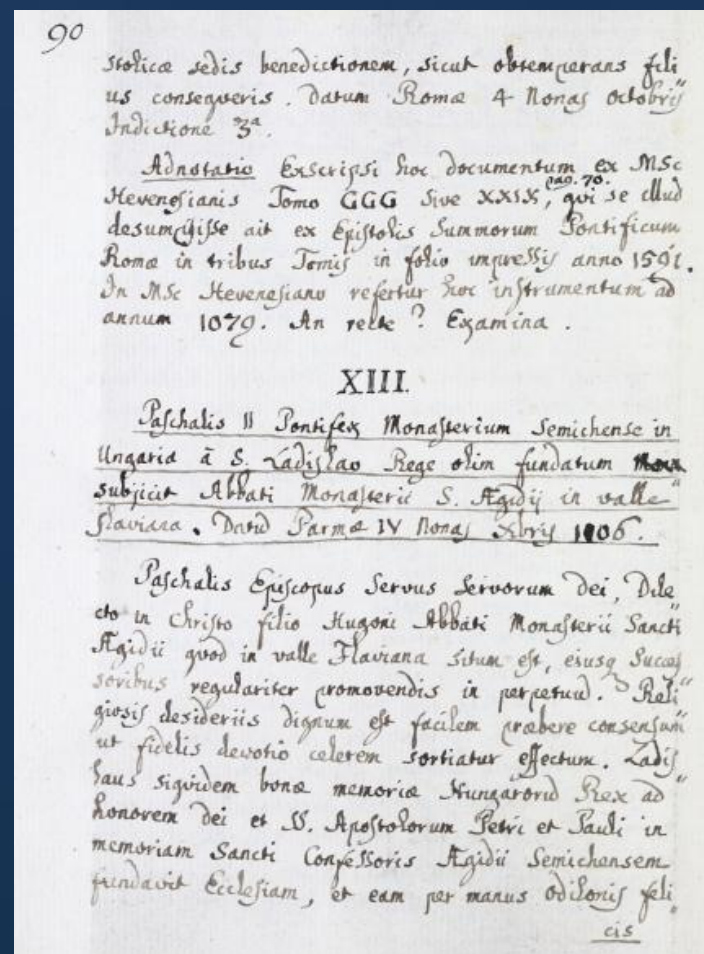 90
stolicæ sedis benedictionem, sicut obtemperans fili
us consequeris. Datum Romæ 4 Nonas octobris
Indictione 3ª.
Adnotatio Exscripsi hoc documentum ex MSc
Hevenesianis Tomo GGG sive XXIX, pag. 70. qui se illud
desumpsisse ait ex Epistolis Summorum Pontificum
Romæ in tribus Tomis in folio impressis anno 1591.
In MSc Hevenesiano refertur hoc instrumentum ad
annum 1079. An recte? Examina.
XIII.
Paschalis II Pontifex Monasterium Semichense in
Ungaria à S. Ladislao Rege olim fundatum
subjicit Abbati Monasterii S. Ægidij in valle
flaviana. Datū Parmæ IV Nonas Xbris 1106.
Paschalis Episcopus Servus Servorum Dei, Dile
cto in Christo filio Hugoni Abbati Monasterii Sancti
Ægidii qvod in valle Flaviana situm est, eiusq Succes
soribus regulariter promovendis in perpetuū. Reli
giosis desideriis dignum est facilem præbere consensum
ut fidelis devotio celerem sortiatur effectum. Ladis
laus siqvidem bonæ memoriæ Hungarorū Rex ad
honorem Dei et SS. Apostolorum Petri et Pauli in
memoriam Sancti Confessoris Ægidii Semichensem
fundavit Ecclesiam, et eam per manus odilonis feli
cis